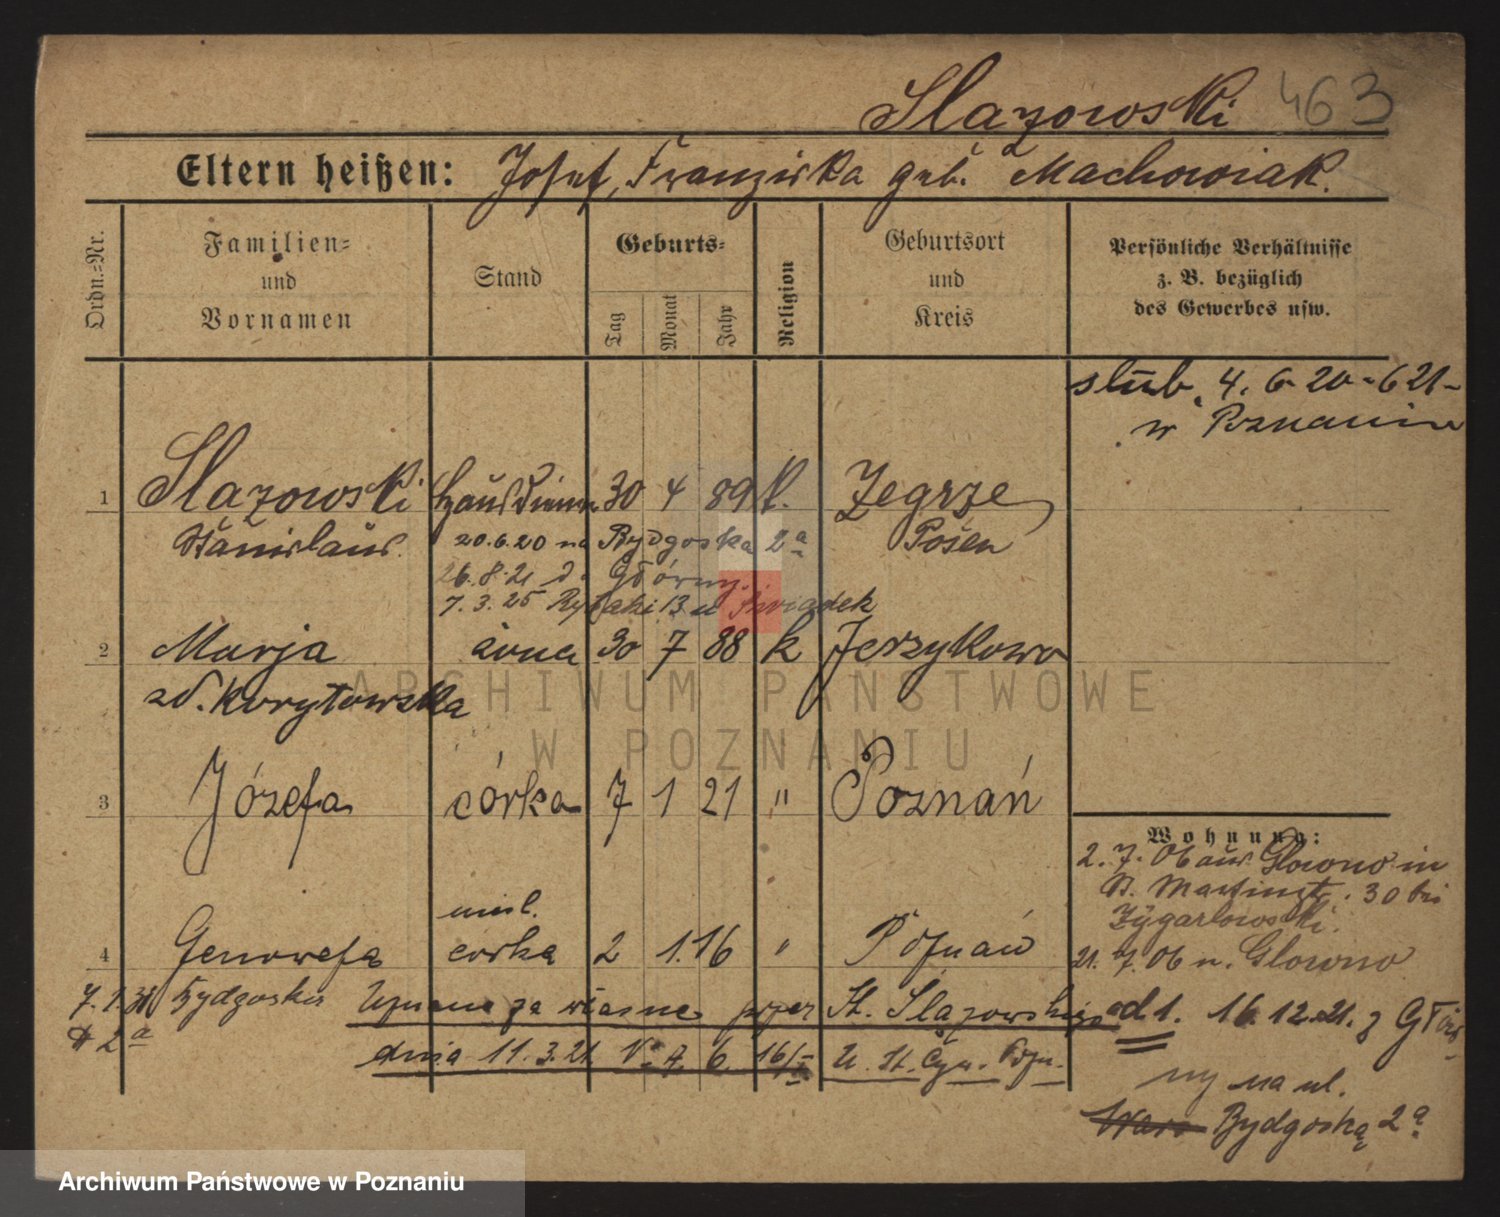 Slazowski 463
Eltern heißen: Josef, Franziska geb. Machowiak.
Ordn.-Nr.
Familien- und Vornamen
Stand
Geburts-
Tag
Monat
Jahr
Religion
Geburtsort und Kreis
Persönliche Verhältnisse
z. B. bezüglich
des Gewerbes usw.
ślub. 4. 6. 20
w Poznaniu
1 Slazowski Hausdiener 30 4 89 k. Zegrze
Stanislaus. 20.6.20 na Bydgoska 2a Posen
26.8.21 Górny
7.3.25 13 u Świadek
2 Marja żona 30 7 88 k Jerzykowo
zd. Korytowska
ARCHIWUM PAŃSTWOWE
W POZNANIU
3 Józefa córka 7 1 21 " Poznań
Wohnung:
2. 7. 06 aus Glowno in
St. Martinstr. 30 bei
Zygarlowski.
nieśl.
4 Genowefa córka 2 1. 16 " Poznań
21. 7. 06 n. Glowno
7. 1. Bydgoska 2a
Uznane za własne przez St. Slazowskiego
dnia 11. 3. 21. V. A. 6. 16/ U. St. Cyw. Pozn.
od 1. 16. 12. 21. z
ny na ul.
Bydgoską 2a.
Archiwum Państwowe w Poznaniu